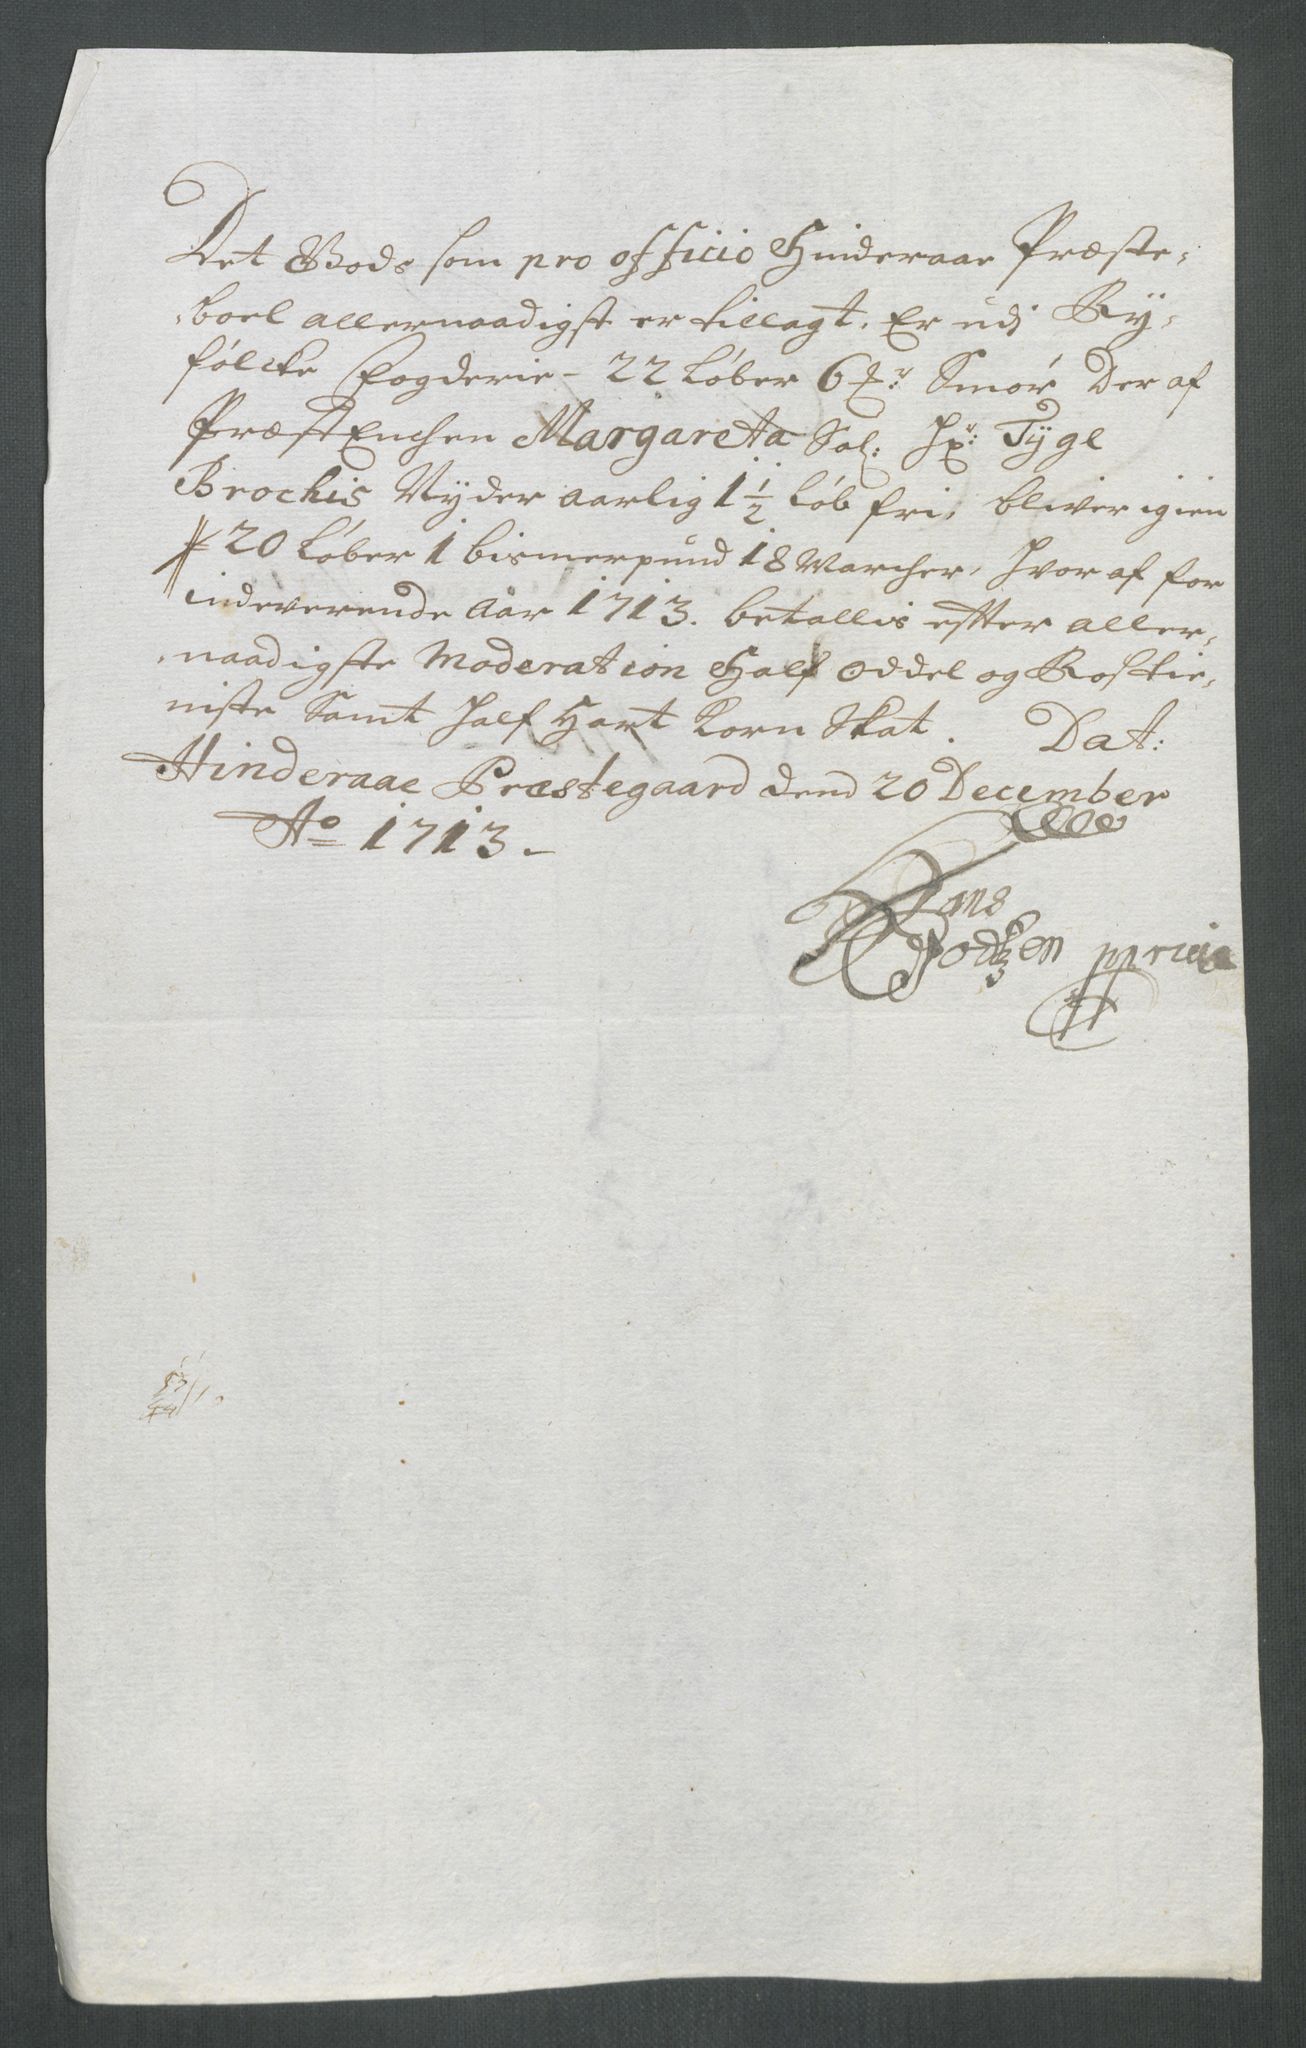 Det Gods som pro officio Hinderaae Præste,
,boel allernaadigst er tillagt. Er udj Ry,
fölcke Fogderie - 22 Löber 6 Smör Der af
PræstEnchen Margareta Sal: Hr: Tÿge
Brochis Nÿder aarlig 1 1/2 Löb fri, bliver igien
20 Löber 1 bismerpund 18 Marcher, Hvor af for
indeverende Aar 1713. betallis effter aller,
,naadigste Moderation Half Oddel og Rostie,
niste Samt Half Hart Korn Skat. Dat:
Hinderaae Præstegaard dend 20 December
Ao 1713.-
Jens
Godtzen ppria